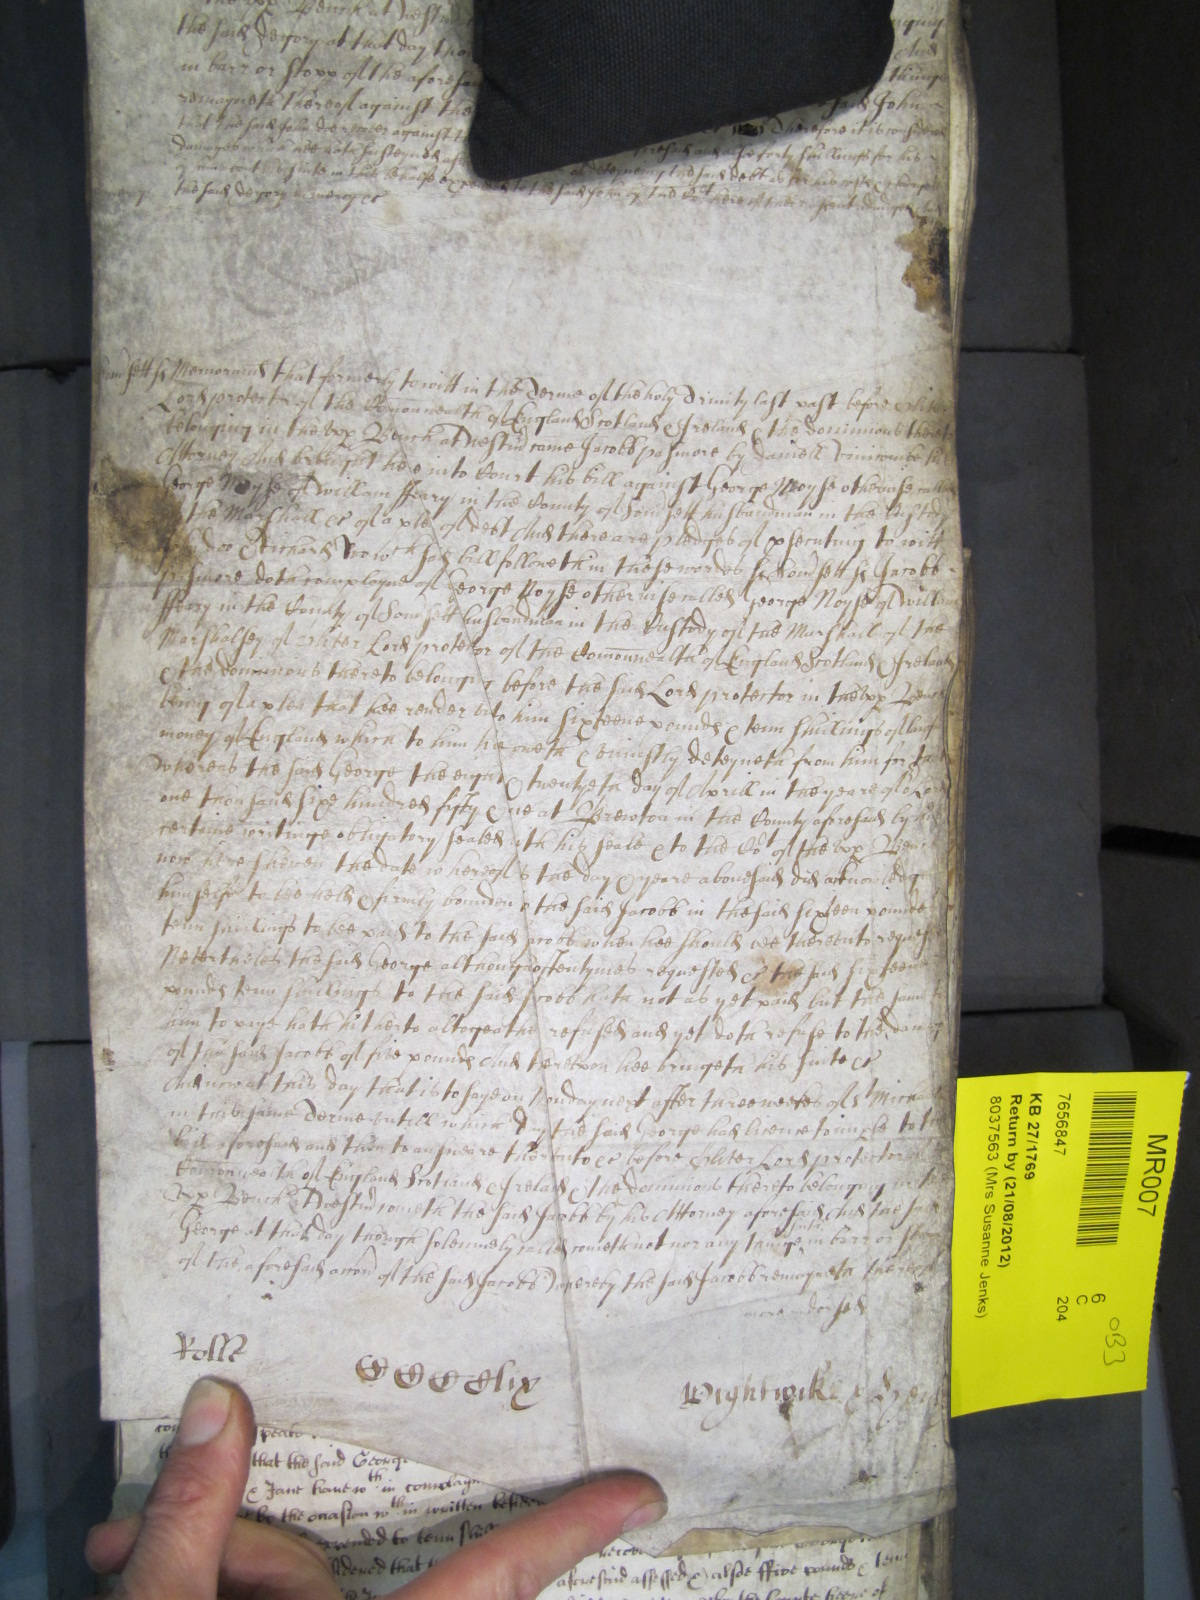 the upp Bench at Westm
the said Gregory at that day tho
in barr or stopp of the aforesaid
remayneth thereof against the said John
that the said John doe recover against Therefore it is considered
damages which hee hath susteyned and alsoe forty shillings for his
the said Gregory in mercy &c
Somsett ss Memorand that formerly to witt in the Terme of the holy Trinity last past before Oliver
Lord protector of the Comonwealth of England Scotland & Ireland & the dominions thereto
belonging in the upp Bench at Westm came Jacobb pasmore by Daniell his
Attorney And brought here into Court his bill against George Noyse otherwise called
George Noyse of William ffeary in the County of Somsett husbandman in the Custody
of the Marshall &c of a ple of debt And there are pledges of psecuting to witt
John Doo & Richard Roo which said bill followeth in these wordes ss Somsett ss Jacobb
pasmore doth complayne of George Noyse otherwise called George Noyse of William
ffeary in the County of Somsett husbandman in the Custody of the Marshall of the
Marshalsey of Oliver Lord protector of the Comonwealth of England Scotland & Ireland
& the dominions thereto belonging before the said Lord protector in the upp Bench
being of a plea that hee render unto him sixteene pounds & tenn shillings of lawfull
money of England which to him he oweth & uniustly deteyneth from him for that
whereas the said George the eight & twentyeth day of Aprill in the yeare of o Lord
one thousand sixe hundred fifty & one at Brewton in the County aforesaid by his
certaine writinge obligatory sealed with his seale & to the Co of the upp Bench
now here shewen the date whereof is the day & yeare abovesaid did acknowledge
himselfe to bee held & firmly bounden to the said Jacobb in the said sixteen pounds
tenn shillings to bee paid to the said Jacobb when hee should bee thereunto requested
Neverthelesse the said George although oftentymes requested &c the said sixteene
pounds tenn shillings to the said Jacobb hath not as yet paid but the same to
him to paye hath hitherto altogeather refused and yet doth refuse to the damage
of the said Jacobb of five pounds And thereupon hee bringeth his suite &c
And now at this day that is to saye on Monday next after three weekes of St Michael
in this same Terme untill which day the said George had licence to imple to the
bill aforesaid and then to answeare thereunto &c before Oliver Lord protector of
Comonwealth of England Scotland & Ireland & the dominions thereto belonging in the
upp Bench at Westm cometh the said Jacobb by his Attorney aforesaid And the said
George at that day though solemnely called cometh not nor any thinge saith in barr or stopp
of the aforesaid accon of the said Jacobb whereby the said Jacobb remayneth thereof
more indorsed
Rolle
CCCClix
Wightwik &
that the said George
& Jane have wth in complayn
by the occasion wth in written
to tenn
aforesaid assessed & alsoe ffive pounds & tenn
MR007
6
C
204
033
7656847
KB 27/1769
Return by (21/08/2012)
8037563 (Mrs Susanne Jenks)